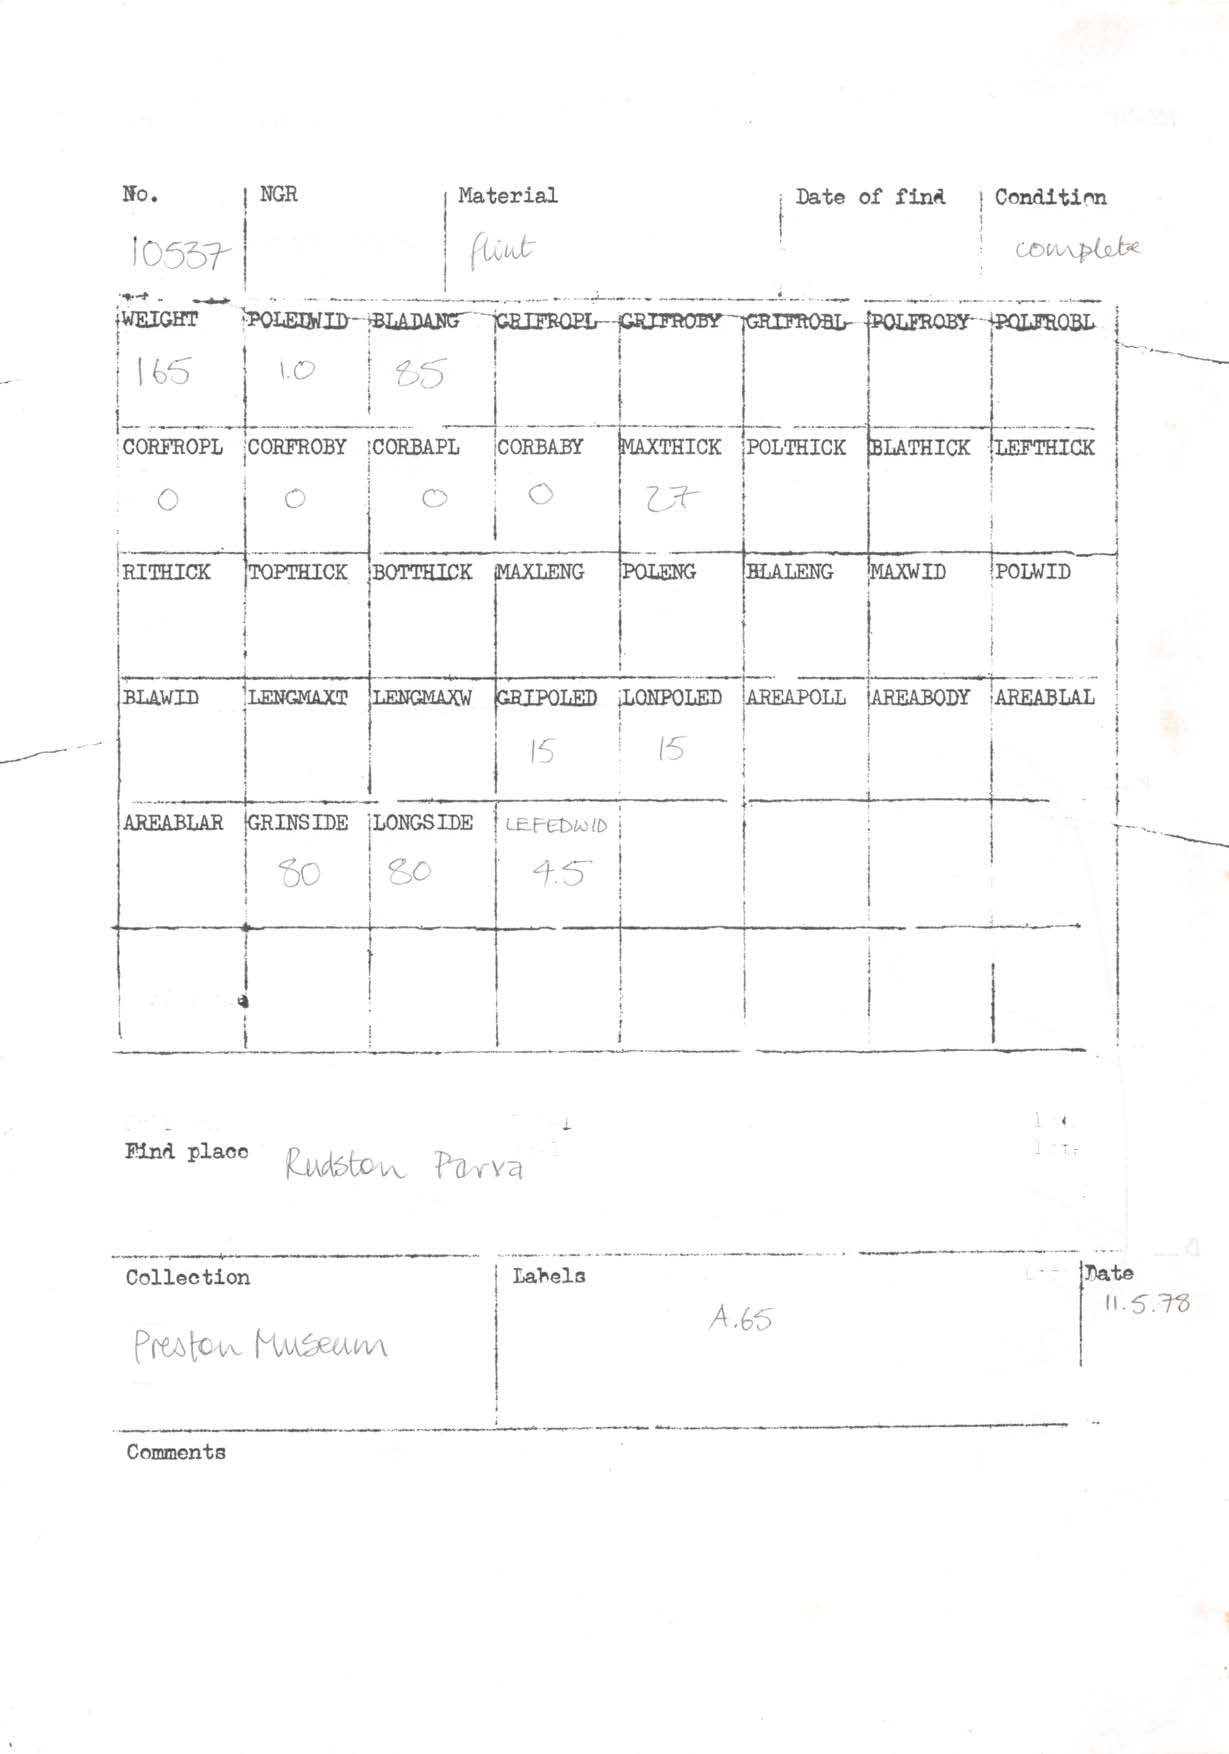 No. NGR Material Date of find Condition
10537 flint complete
WEIGHT POLEDWID BLADANG GRIFROPL GRIFROBY GRIFROBL POLFROBY POLFROBL
165 1.0 85
CORFROPL CORFROBY CORBAPL CORBABY MAXTHICK POLTHICK BLATHICK LEFTHICK
0 0 0 0 27
RITHICK TOPTHICK BOTTHICK MAXLENG POLENG BLALENG MAXWID POLWID
BLAWID LENGMAXT LENGMAXW GRIPOLED LONPOLED AREAPOLL AREABODY AREABLAL
15 15
AREABLAR GRINSIDE LONGSIDE LEFEDWID
80 80 4.5
Find place Rudston Parva
Collection Labels Date
Preston Museum A.65 11.5.78
Comments